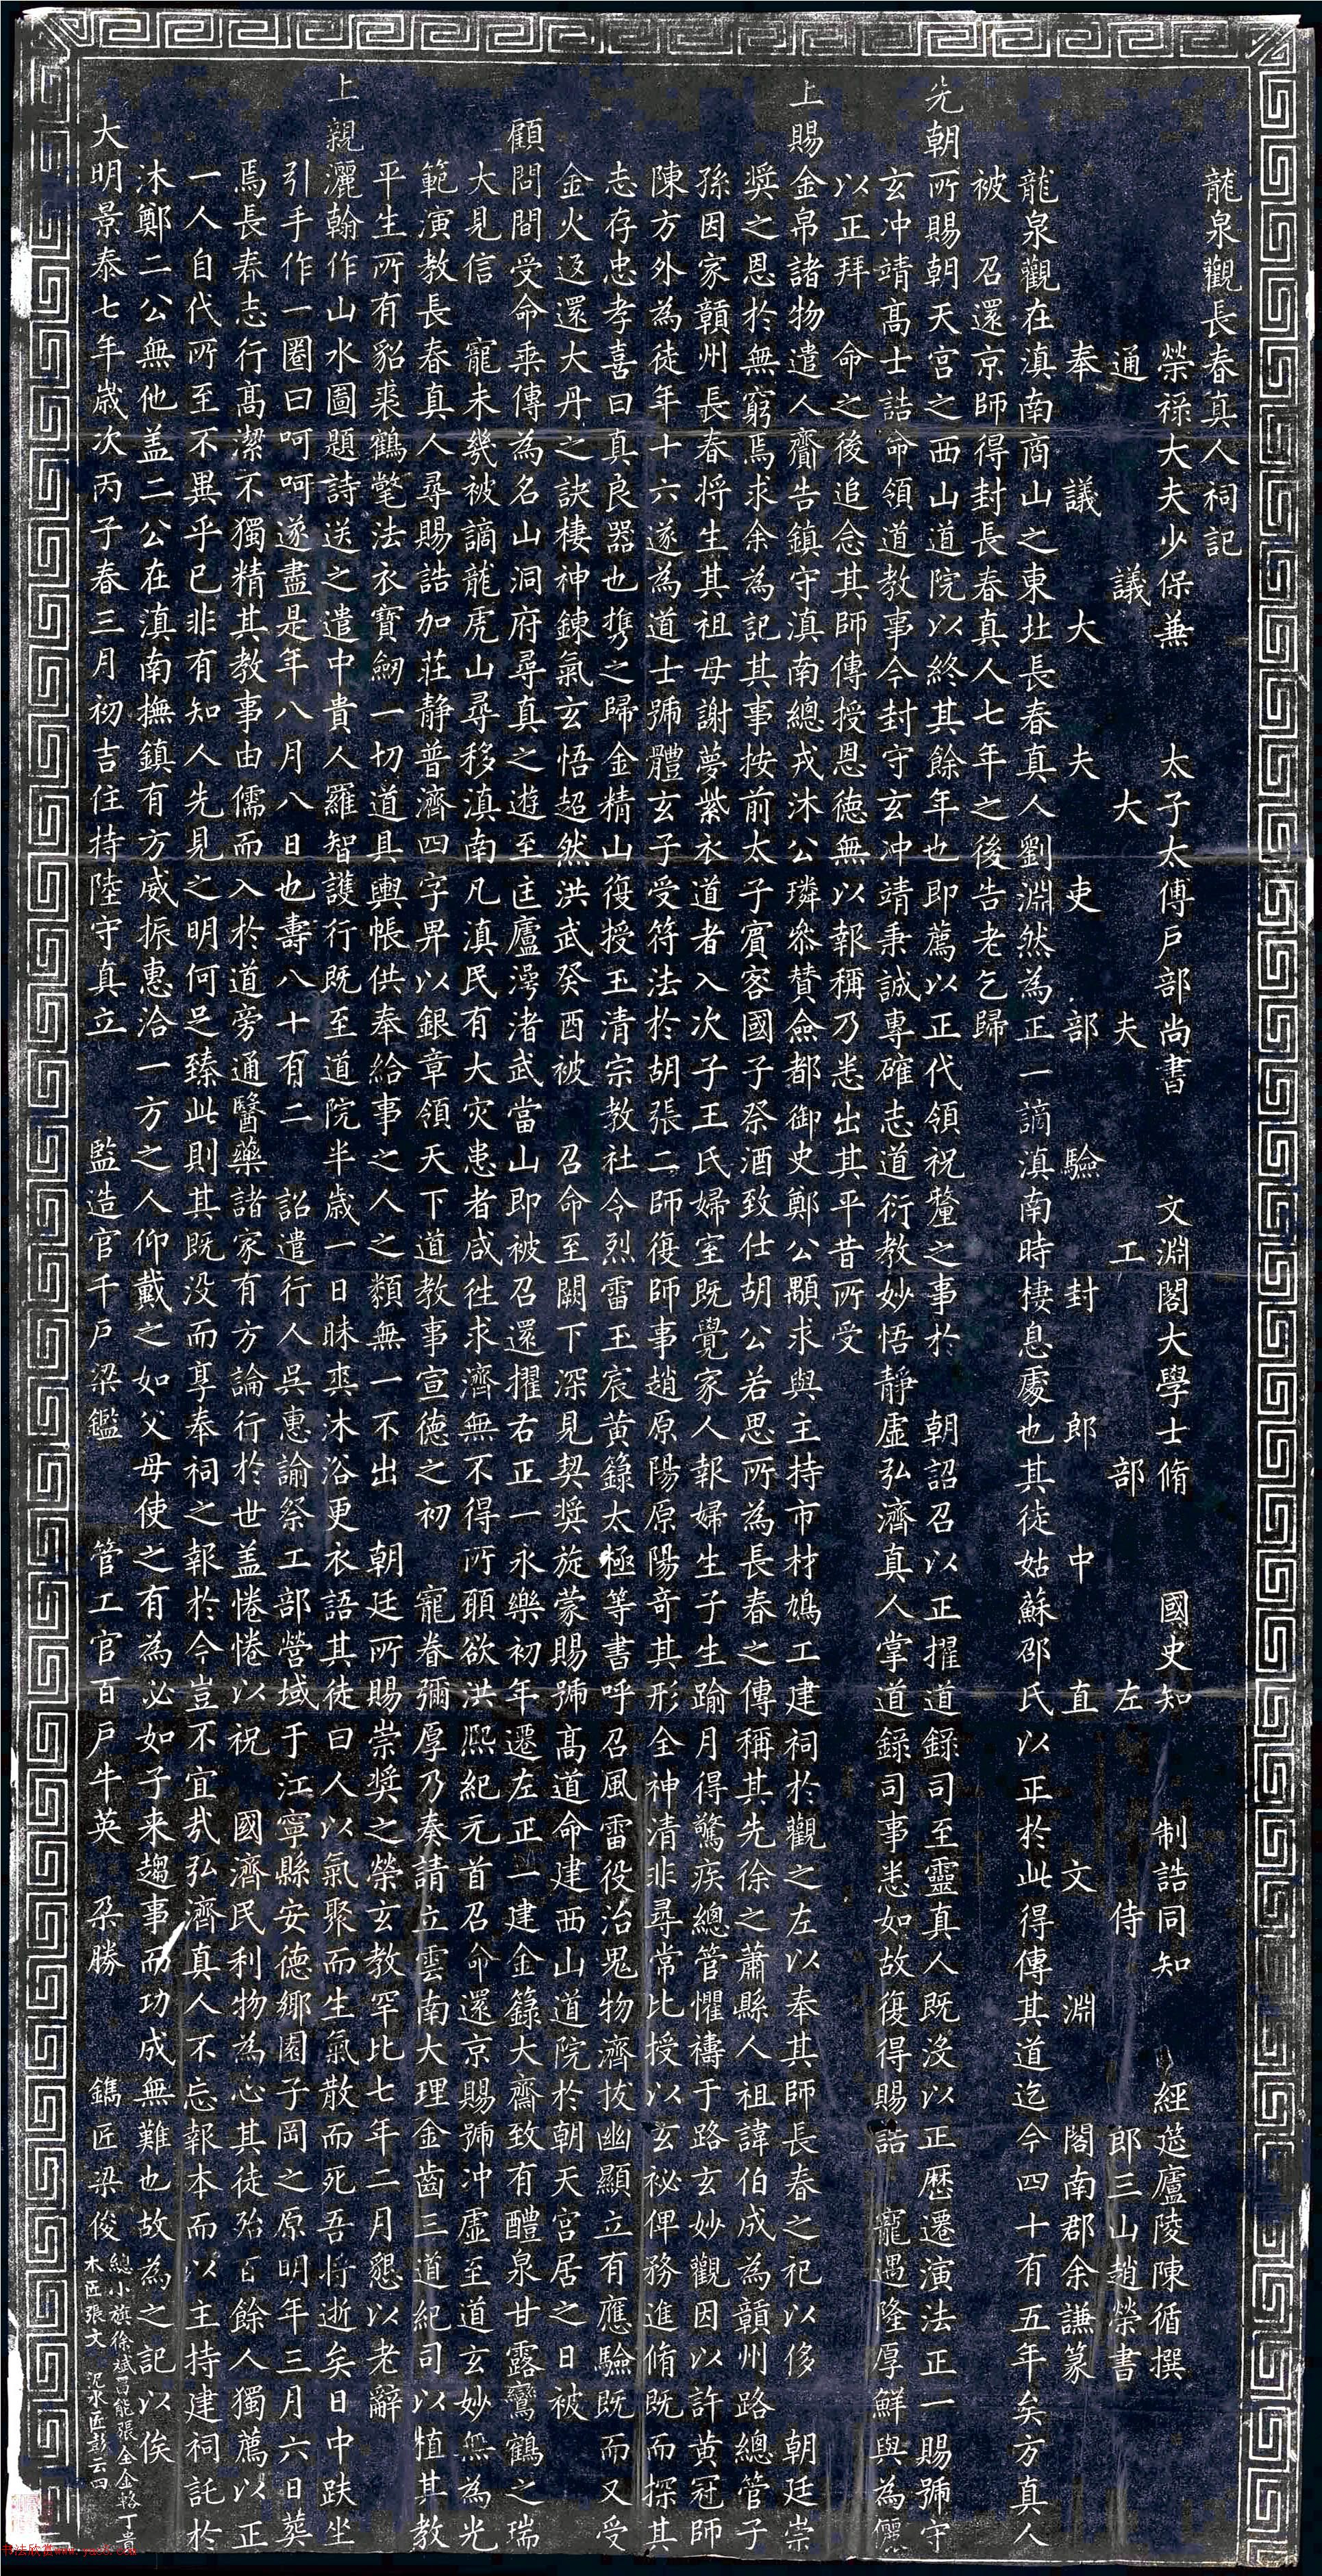 龍泉觀長春真人祠記
榮祿大夫少保兼 太子太傅戶部尚書 文淵閣大學士脩 國史知 制誥同知 經筵廬陵陳循撰
通議大夫工部左侍郎三山趙榮書
奉議大夫吏部驗封郎中直文淵閣南郡余謙篆
龍泉觀在滇南商山之東圵長春真人劉淵然為正一謫滇南時棲息處也其徒姑蘇邵氏以正於此得傳其道迄今四十有五年矣方真人
被 召還京師得封長春真人七年之後告老乞歸
先朝所賜朝天宮之西山道院以終其餘年也即薦以正代領祝釐之事於 朝詔召以正擢道錄司至靈真人既沒以正歷遷演法正一賜號守
玄冲靖高士誥命領道教事今封守玄冲靖秉誠專確志道衍教妙悟靜虛弘濟真人掌道錄司事悉如故復得賜誥 寵遇隆厚鮮與為儷
以正拜 命之後追念其師傳授恩德無以報稱乃悉出其平昔所受
上賜金帛諸物遣人齎告鎮守滇南總戎沐公璘叅賛僉都御史鄭公顒求與主持市材鳩工建祠於觀之左以奉其師長春之祀以侈 朝廷崇
獎之恩於無窮焉求余為記其事按前太子賓客國子祭酒致仕胡公若思所為長春之傳稱其先徐之蕭縣人祖諱伯成為贛州路總管子
孫因家贛州長春将生其祖母謝夢紫衣道者入次子王氏婦室既覺家人報婦生子生踰月得驚疾總管懼禱于路玄妙觀因以許黃冠師
陳方外為徒年十六遂為道士號體玄子受符法於胡張二師復師事趙原陽原陽奇其形全神清非尋常比授以玄祕俾務進脩既而探其
志存忠孝喜曰真良器也携之歸金精山復授玉清宗教社令烈雷玉宸黃籙太極等書呼召風雷役治鬼物濟拔幽顯立有應驗既而又受
金火返還大丹之訣棲神鍊氣玄悟超然洪武癸酉被 召命至闕下深見契獎旋蒙賜號高道命建西山道院於朝天宮居之日被
顧問間受命乘傳為名山洞府尋真之遊至匡廬灣渚武當山即被召還擢右正一永樂初年遷左正一建金籙大齋致有醴泉甘露鸞鶴之瑞
大見信 寵未幾被謫龍虎山尋移滇南凡滇民有大灾患者咸往求濟無不得所願欲洪熙紀元首召命還京賜號冲虛至道玄妙無為光
範演教長春真人尋賜誥加莊静普濟四字畀以銀章領天下道教事宣德之初 寵眷彌厚乃奏請立雲南大理金齒三道紀司以植其教
平生所有貂裘鶴氅法衣寶劒一切道具輿帳供奉給事之人之類無一不出 朝廷所賜崇獎之榮玄教罕比七年二月懇以老辭
上親灑翰作山水圖題詩送之遣中貴人羅智護行既至道院半歲一日昧爽沐浴更衣語其徒曰人以氣聚而生氣散而死吾将逝矣日中趺坐
引手作一圈曰呵呵遂盡是年八月八日也壽八十有二 詔遣行人吳惠諭祭工部營域于江寧縣安德鄉園子岡之原明年三月六日葬
焉長春志行高潔不獨精其教事由儒而入於道旁通醫藥諸家有方論行於世盖惓惓以祝 國濟民利物為心其徒殆百餘人獨薦以正
一人自代所至不異乎已非有知人先見之明何足臻此則其既没而享奉祠之報於今豈不宜㢤弘濟真人不忘報本而以主持建祠託於
沐鄭二公無他盖二公在滇南撫鎮有方威振惠洽一方之人仰戴之如父母使之有為必如子来趨事而功成無難也故為之記以俟
大明景泰七年歲次丙子春三月初吉住持陸守真立 監造官千戶梁鑑 管工官百戶牛英 朶勝 鐫匠梁俊
總小旗徐斌 張金金 丁貴
木匠張文 泥水匠彭云四
书法欣赏www.yac8.com